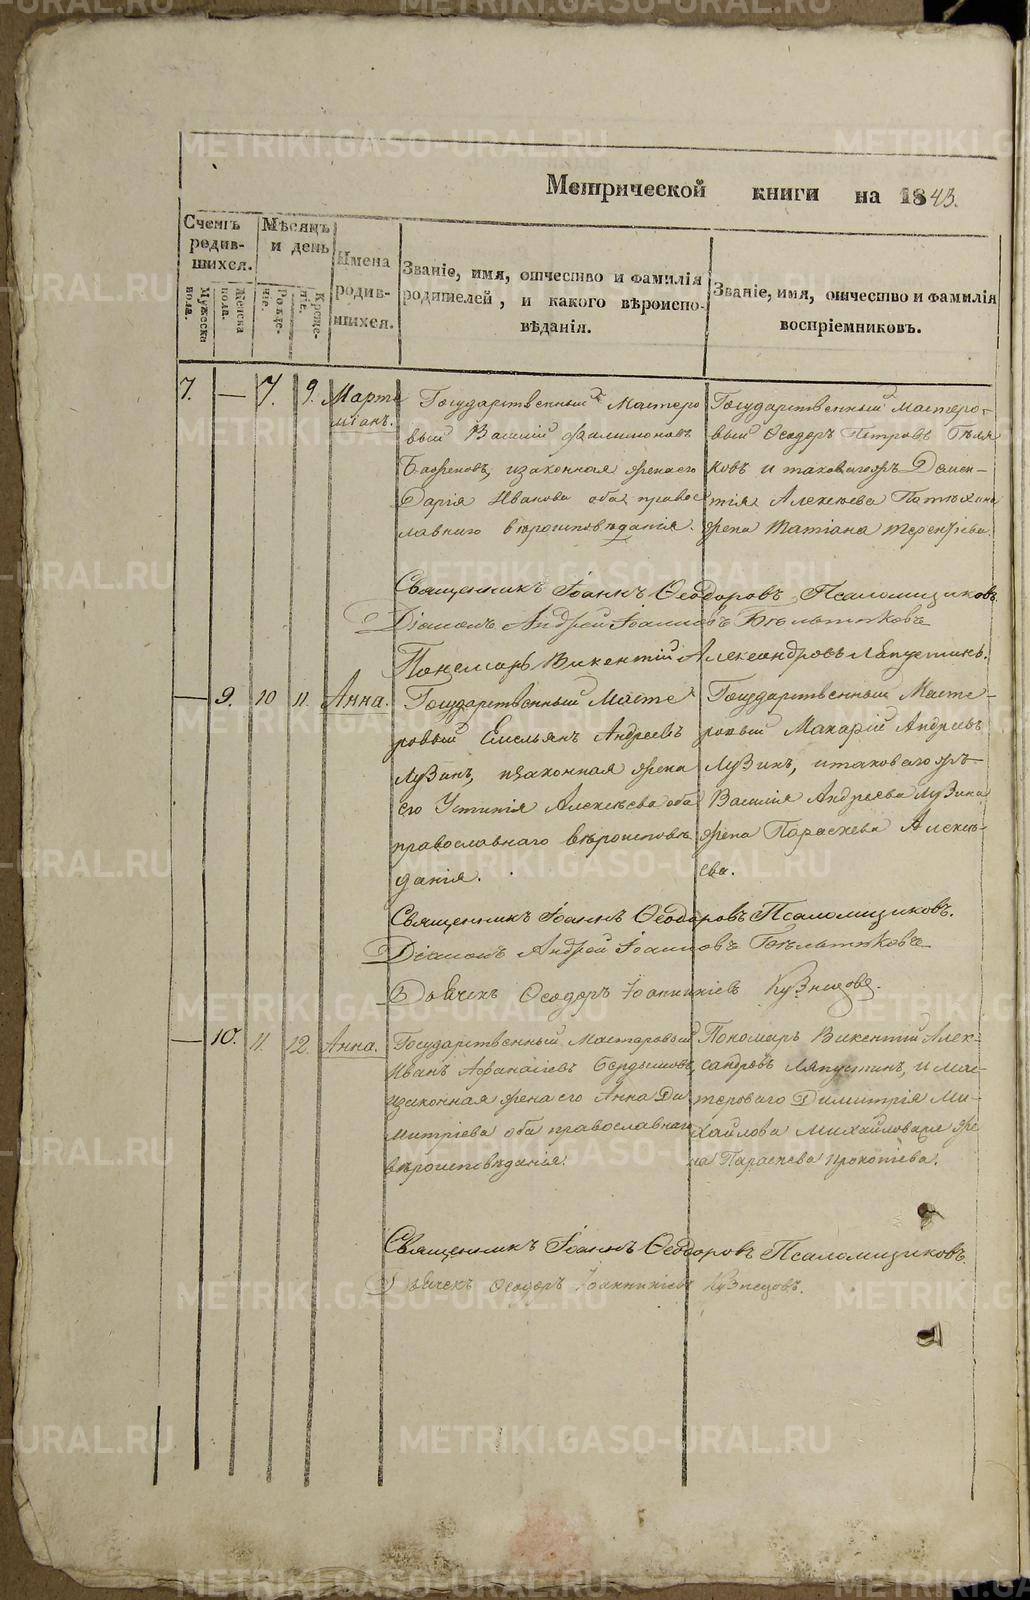 Метрической книги на 1843.
Счетъ родив-шихся.
Мѣсяцъ и день
Имена родив-шихся.
Званіе, имя, отчество и фамилія родителей, и какого вѣроиспо-вѣданія.
Званіе, имя, отчество и фамилія воспріемниковъ.
Мужеска пола.
Женска пола.
Рожде-ніе.
Креще-ніе.
7. — 7. 9. Марти
міанъ.
Государственный Мастеро
вый Василій Филимоновъ
изаконная жена его
Дарія Иванова оба правос
лавнаго вѣроисповѣданія.
Государственный Мастеро-
вый Ѳеодоръ Петровъ Бѣля
ковъ и таковагожъ Демен-
тія Алексѣева
жена Татіана Терентіева.
Священникъ Іоаннъ Ѳеодоровъ Псаломщиковъ.
Діаконъ Андрей Іоанновъ
Пономарь Викентій Александровъ Ляпустинъ.
— 9. 10 11. Анна.
Государственный Масте
ровый Емельянъ Андреевъ
Лузинъ, изаконная жена
его Устинія Алексѣева оба
православнаго вѣроисповѣ
данія.
Государственный Масте-
ровый Макарій Андреевъ
Лузинъ, итаковагожъ
Василія Андреева Лузина
жена Параскева Алексѣ-
ева.
Священникъ Іоаннъ Ѳеодоровъ Псаломщиковъ.
Діаконъ Андрей Іоанновъ
Дьячекъ Ѳеодоръ Іоанникіевъ Кузнецовъ.
— 10. 11. 12. Анна.
Государственный мастеровый
Иванъ Афанасіевъ Бердышовъ,
изаконная жена его Анна Ди
митріева оба православнаго
вѣроисповѣданія.
Пономарь Викентій Алек-
сандровъ Ляпустинъ, и мас-
тероваго Димитрія Ми-
хайлова Михайловыхъ же
на Параскева Прокопіева.
Священникъ Іоаннъ Ѳеодоровъ Псаломщиковъ.
Дьячекъ Ѳеодоръ Іоанникіевъ Кузнецовъ.
METRIKI.GASO-URAL.RU